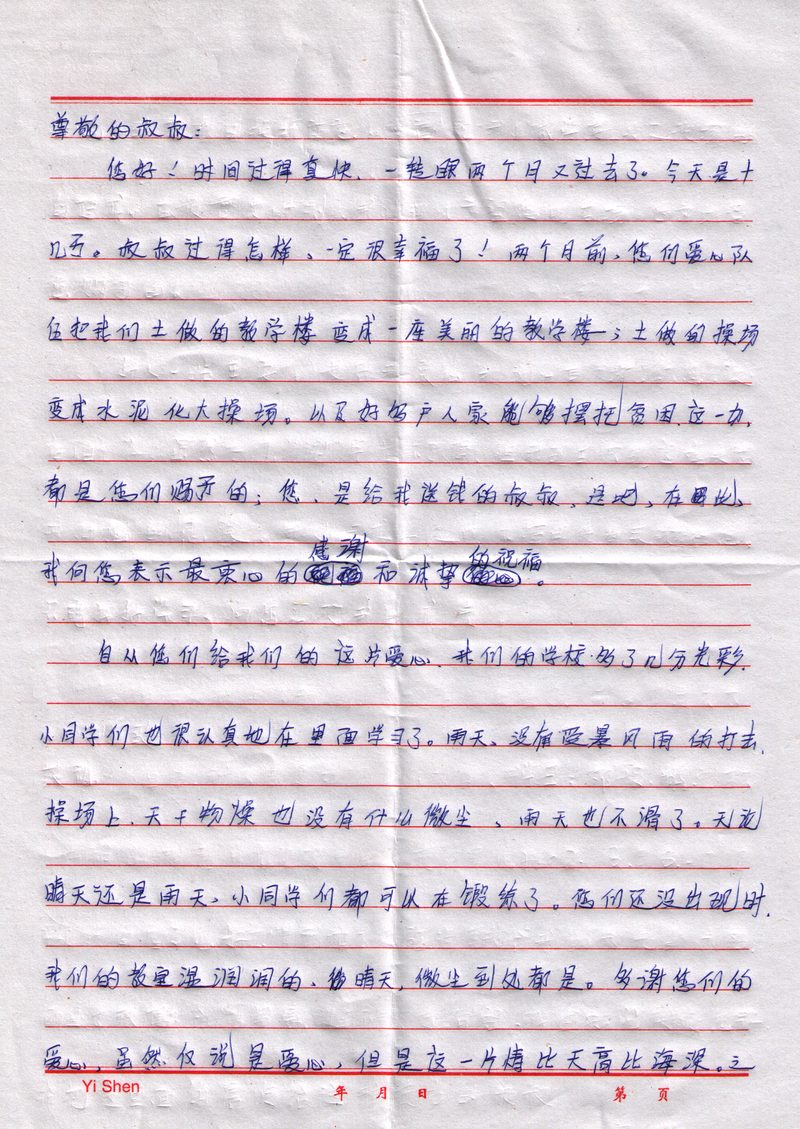 尊敬的叔叔:
您好!时间过得真快,一转眼两个月又过去了。今天是十
几号。叔叔过得怎样、一定很幸福了!两个月前,您们爱心队
伍把我们土做的教学楼变成一座美丽的教学楼;土做的操场
变成水泥化大操场。以及好好户人家能够摆托贫困.这一力,
都是您们赐予的;您、是给我送钱的叔叔,在此,
感谢 的祝福
我向您表示最衷心的 和诚挚 。
自从您们给我们的这片爱心.我们的学校多了几分光彩.
小同学们也很认真地在里面学习了。雨天、没有受暴风雨的打击.
操场上、天干物燥也没有什么微尘、雨天也不滑了。无论
晴天还是雨天、小同学们都可以在锻练了。您们还没出现时.
我们的教室湿润润的、晴天,微尘到处都是。多谢您们的
爱心,虽然仅说是爱心,但是这一片情比天高比海深。之
Yi Shen
年 月 日 第 页